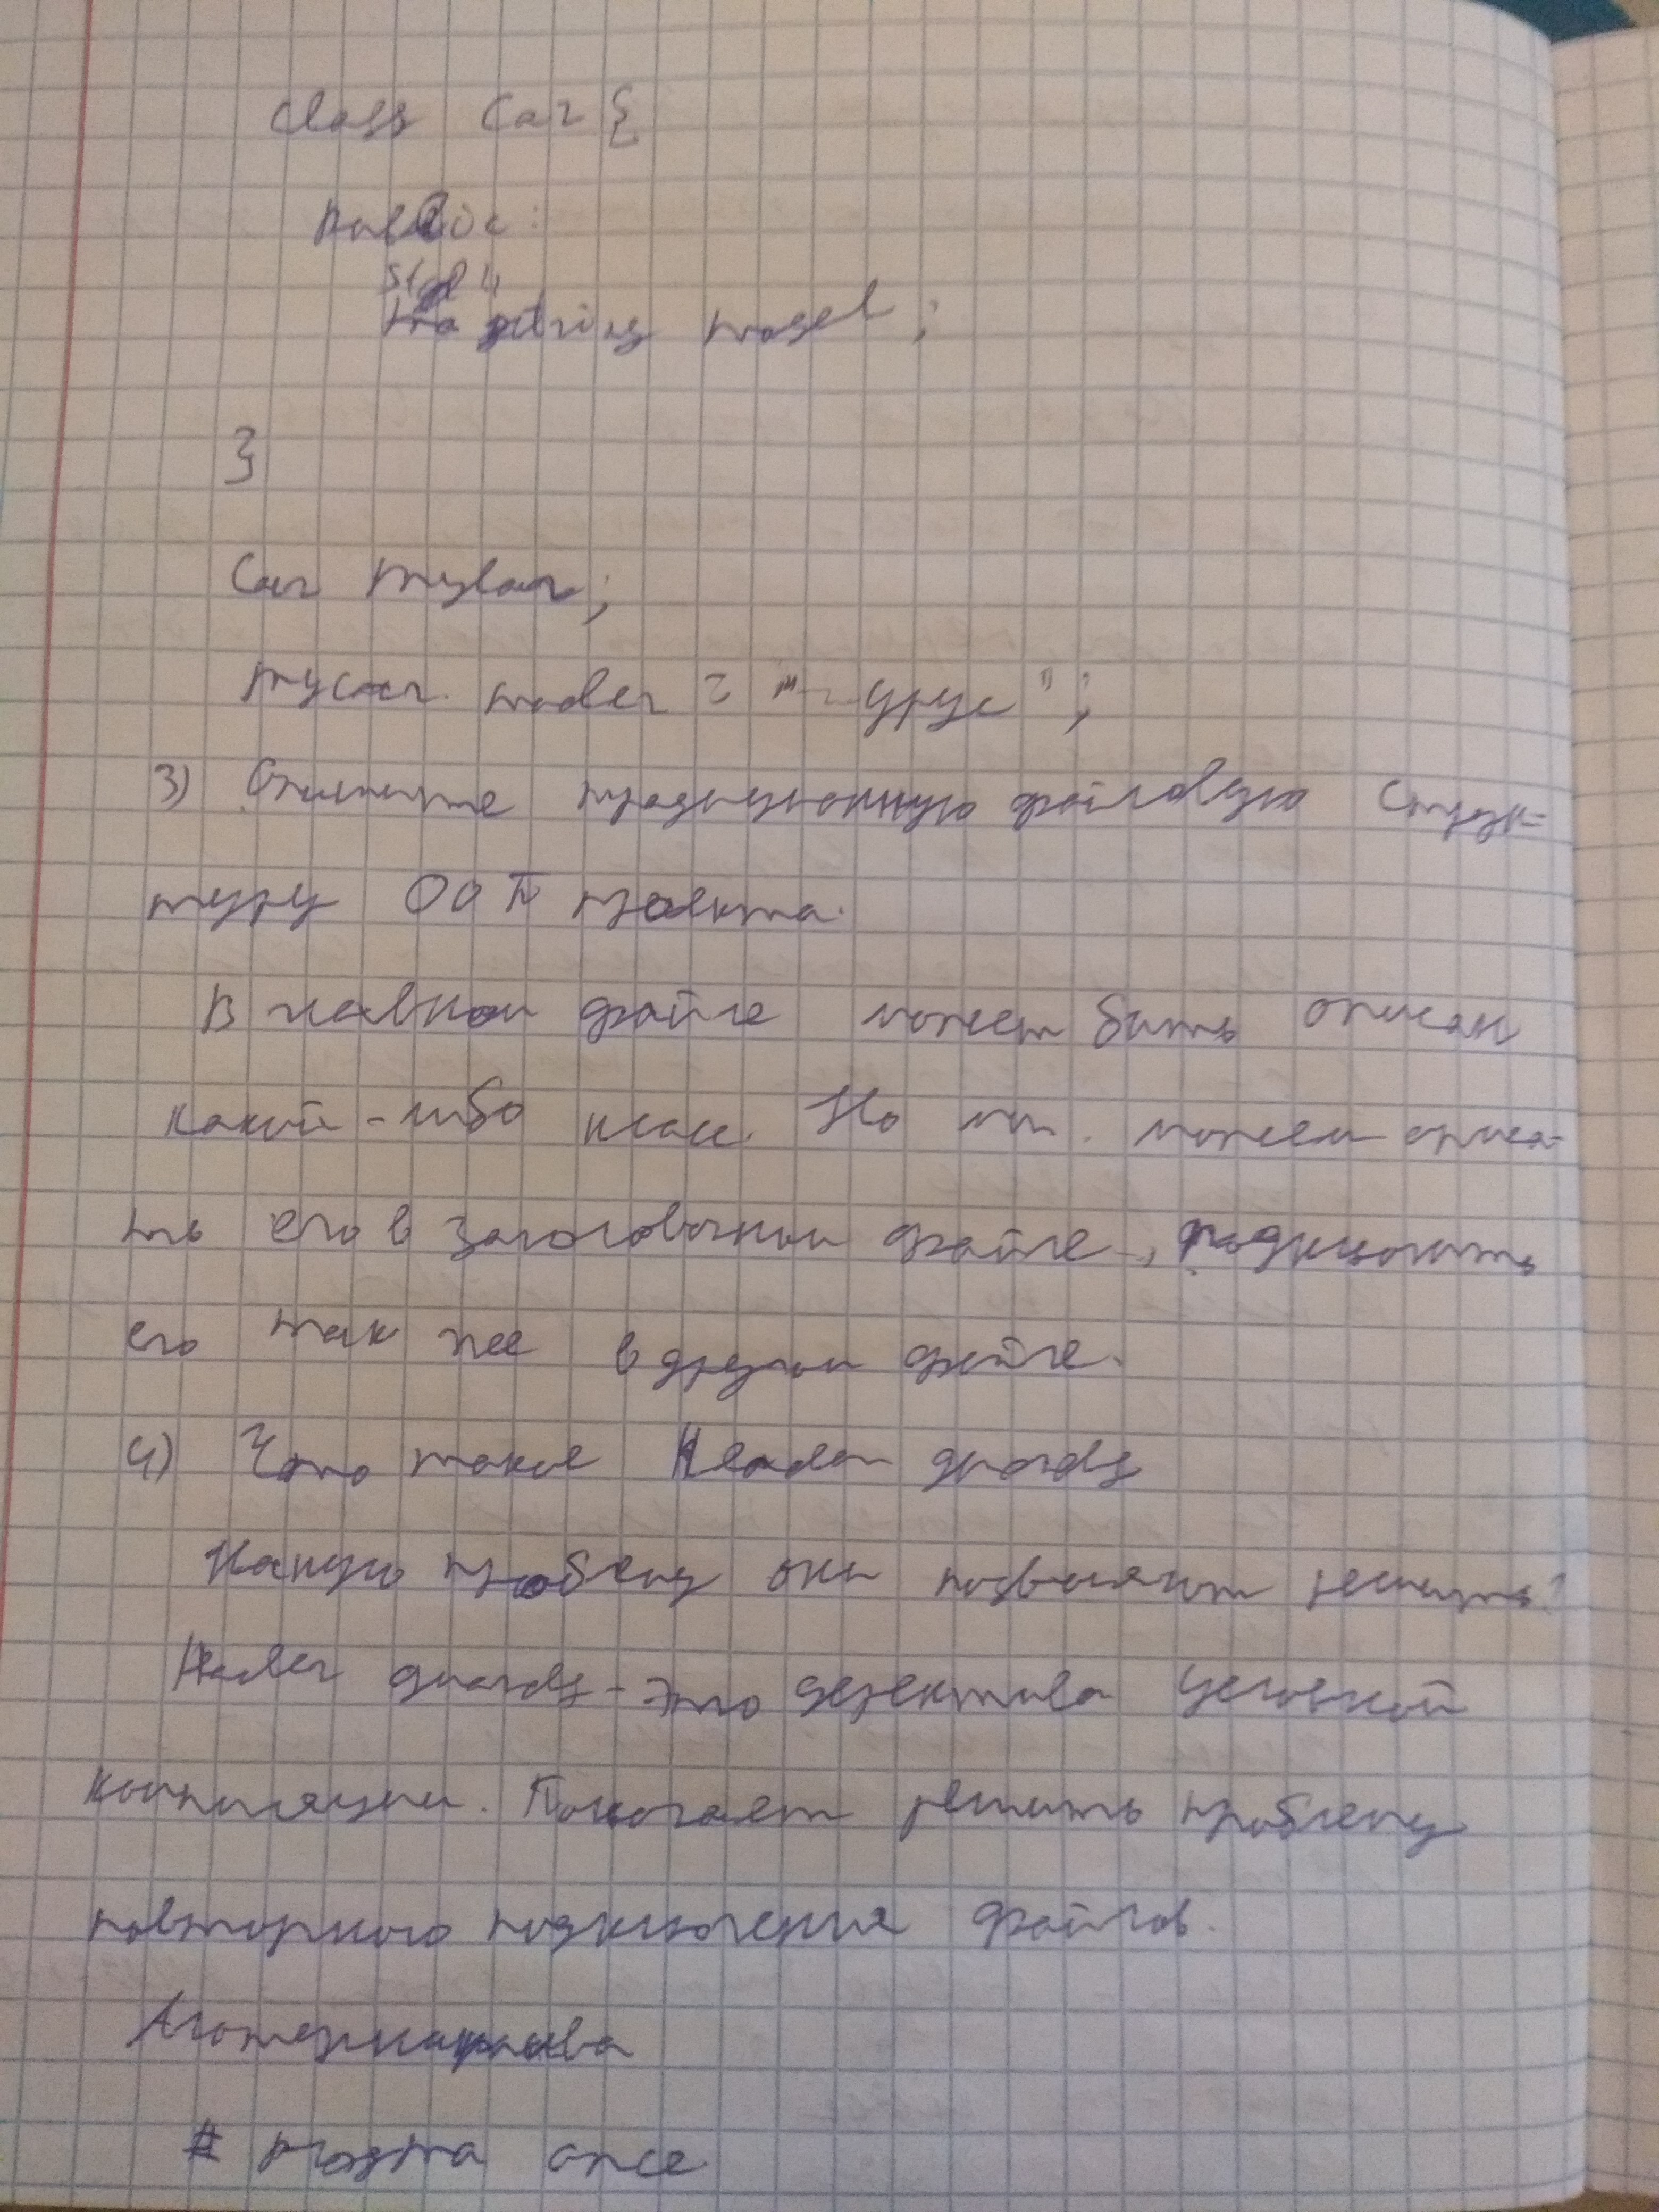 class Car {
public:
string model;
}
Car mycar;
mycar. model = "урус";
3) Опишите традиционную файловую струк-
туру ООП проекта.
В главном файле может быть описан
какой-либо класс. Но мы можем описа-
ть его в заголовочном файле, подключить
его так же в другом файле.
4) Что такое Header guards
Какую проблему они позволяют решить?
Header guards - это деректива условной
компиляции. Помогает решить проблему
повторного подключения файлов.
Альтернатива
# pragma once